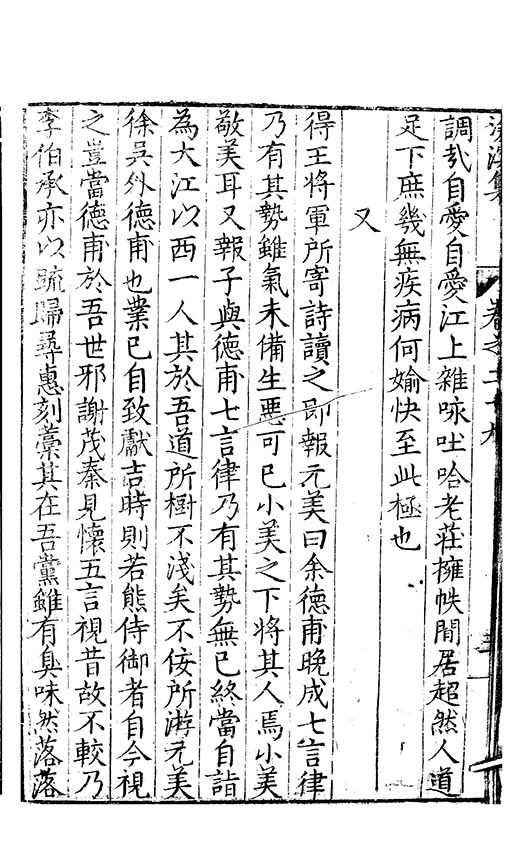 滄溟集 卷之二十九
調哉自愛自愛江上雜咏吐哈老莊擁帙閒居超然人道
足下庶幾無疾病何媮快至此極也
又
得王將軍所寄詩讀之即報元美曰余德甫晚成七言律
乃有其勢雖氣未備生惡可已小美之下將其人焉小美
敵美耳又報子與德甫七言律乃有其勢無已終當自詣
為大江以西一人其於吾道所樹不淺矣不佞所游元美
徐吳外德甫也業已自致獻吉時則若熊侍御者自今視
之豈當德甫於吾世邪謝茂秦見懷五言視昔故不較乃
李伯承亦以䟽歸尋惠刻藁其在吾黨雖有臭味然落落